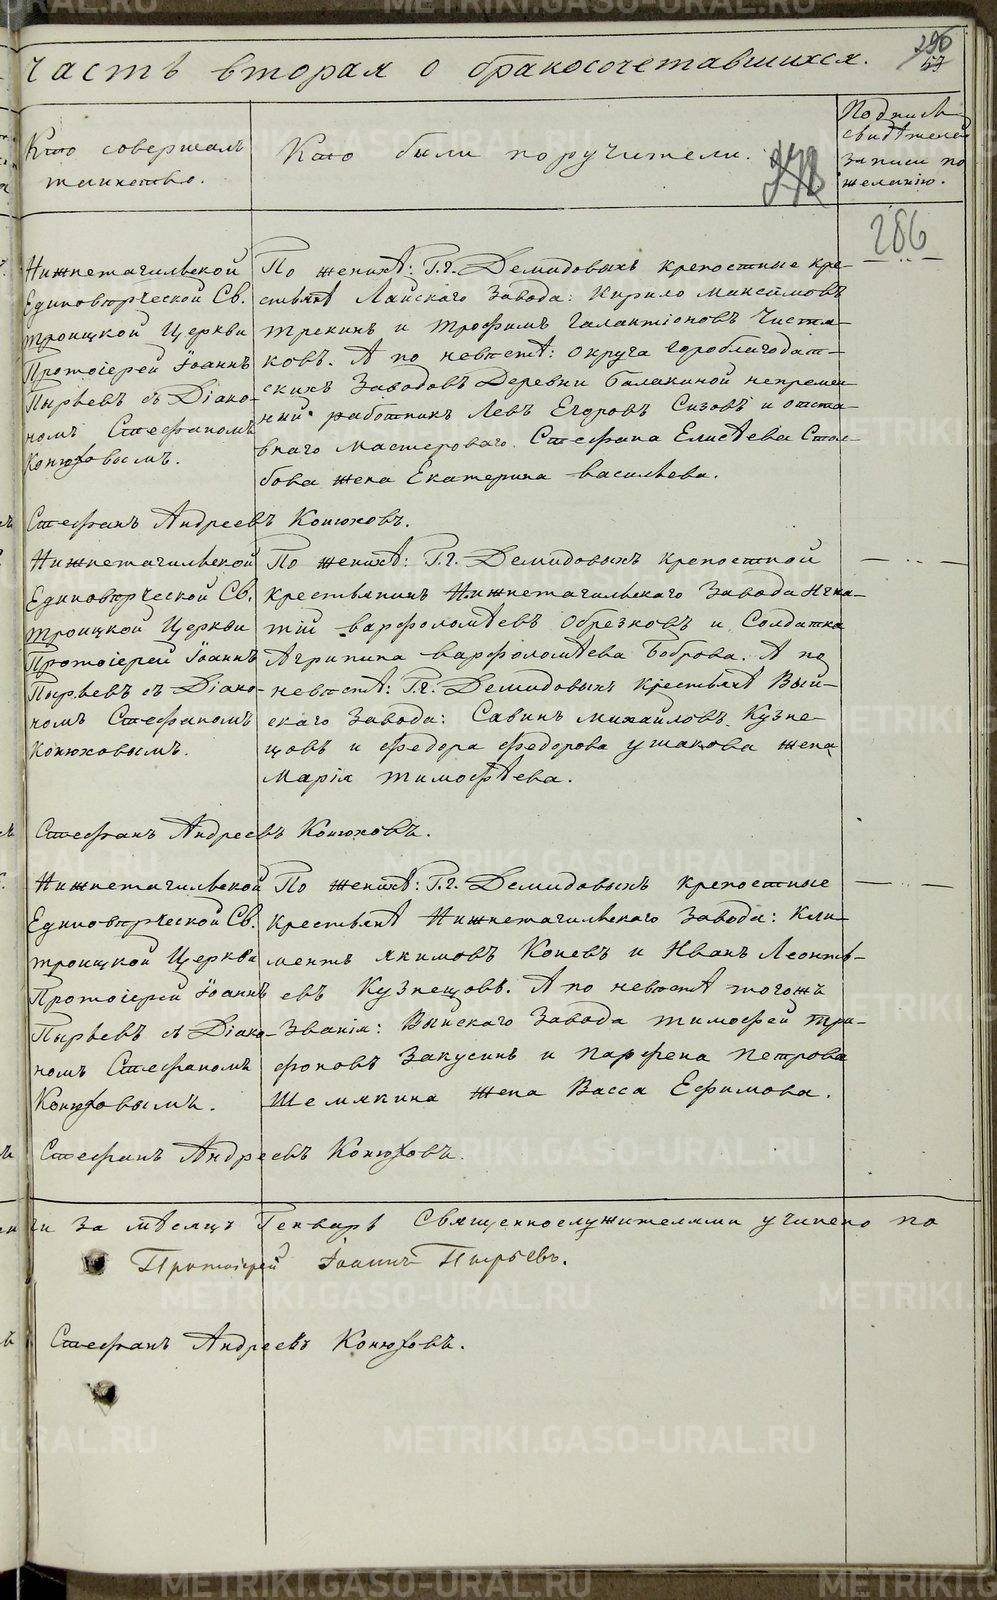 Часть вторая о бракосочетавшихся.
Кто совершалъ таинство.
Кто были поручители.
Подпись свидѣтелей записи по желанію.
286
Нижнетагильской
Единовѣрческой Св.
Троицкой Церкви
Протоіерей Іоаннъ
Пырьевъ съ Діако-
номъ Стефаномъ
Конюховымъ.
По женихѣ: Г.г. Демидовыхъ крепостные кре-
стьянѣ Лайскаго Завода: Кирило Максимовъ
Трекинъ и Трофимъ Галактіоновъ Чистя-
ковъ. А по невѣстѣ: округа Гороблагодат-
скихъ Заводовъ Деревни Балакиной непремен-
ный работникъ Левъ Егоровъ Сизовъ и отста-
внаго мастероваго Стефана Елисѣева Стол-
бова жена Екатерина Васильева.
Стефанъ Андреевъ Конюховъ.
Нижнетагильской
Единовѣрческой Св.
Троицкой Церкви
Протоіерей Іоаннъ
Пырьевъ съ Діако-
номъ Стефаномъ
Конюховымъ.
По женихѣ: Г.г. Демидовыхъ крепостной
крестьянинъ Нижнетагильскаго Завода Игна-
тій Варфоломѣевъ Обрезковъ и Солдатка
Агрипина Варфоломѣева Боброва. А по
невѣстѣ: Г.г. Демидовыхъ крестьянѣ Вый-
скаго Завода: Савинъ Михайловъ Кузне-
цовъ и Федора Федорова Ушакова жена
Марія Тимофѣева.
Стефанъ Андреевъ Конюховъ.
Нижнетагильской
Единовѣрческой Св.
Троицкой Церкви
Протоіерей Іоаннъ
Пырьевъ съ Діако-
номъ Стефаномъ
Конюховымъ.
По женихѣ: Г.г. Демидовыхъ крепостные
крестьянѣ Нижнетагильскаго Завода: Кли-
ментъ Якимовъ Коневъ и Иванъ Леонть-
евъ Кузнецовъ. А по невѣстѣ тогожъ
Званія: Выйскаго Завода Тимофей Три-
фоновъ Закусинъ и Парфена Петрова
Шемякина жена Васса Ефимова.
Стефанъ Андреевъ Конюховъ.
за мѣсяцъ Генварь Священнослужителями учинено по
Протоіерей Іоаннъ Пырьевъ.
Стефанъ Андреевъ Конюховъ.
METRIKI.GASO-URAL.RU